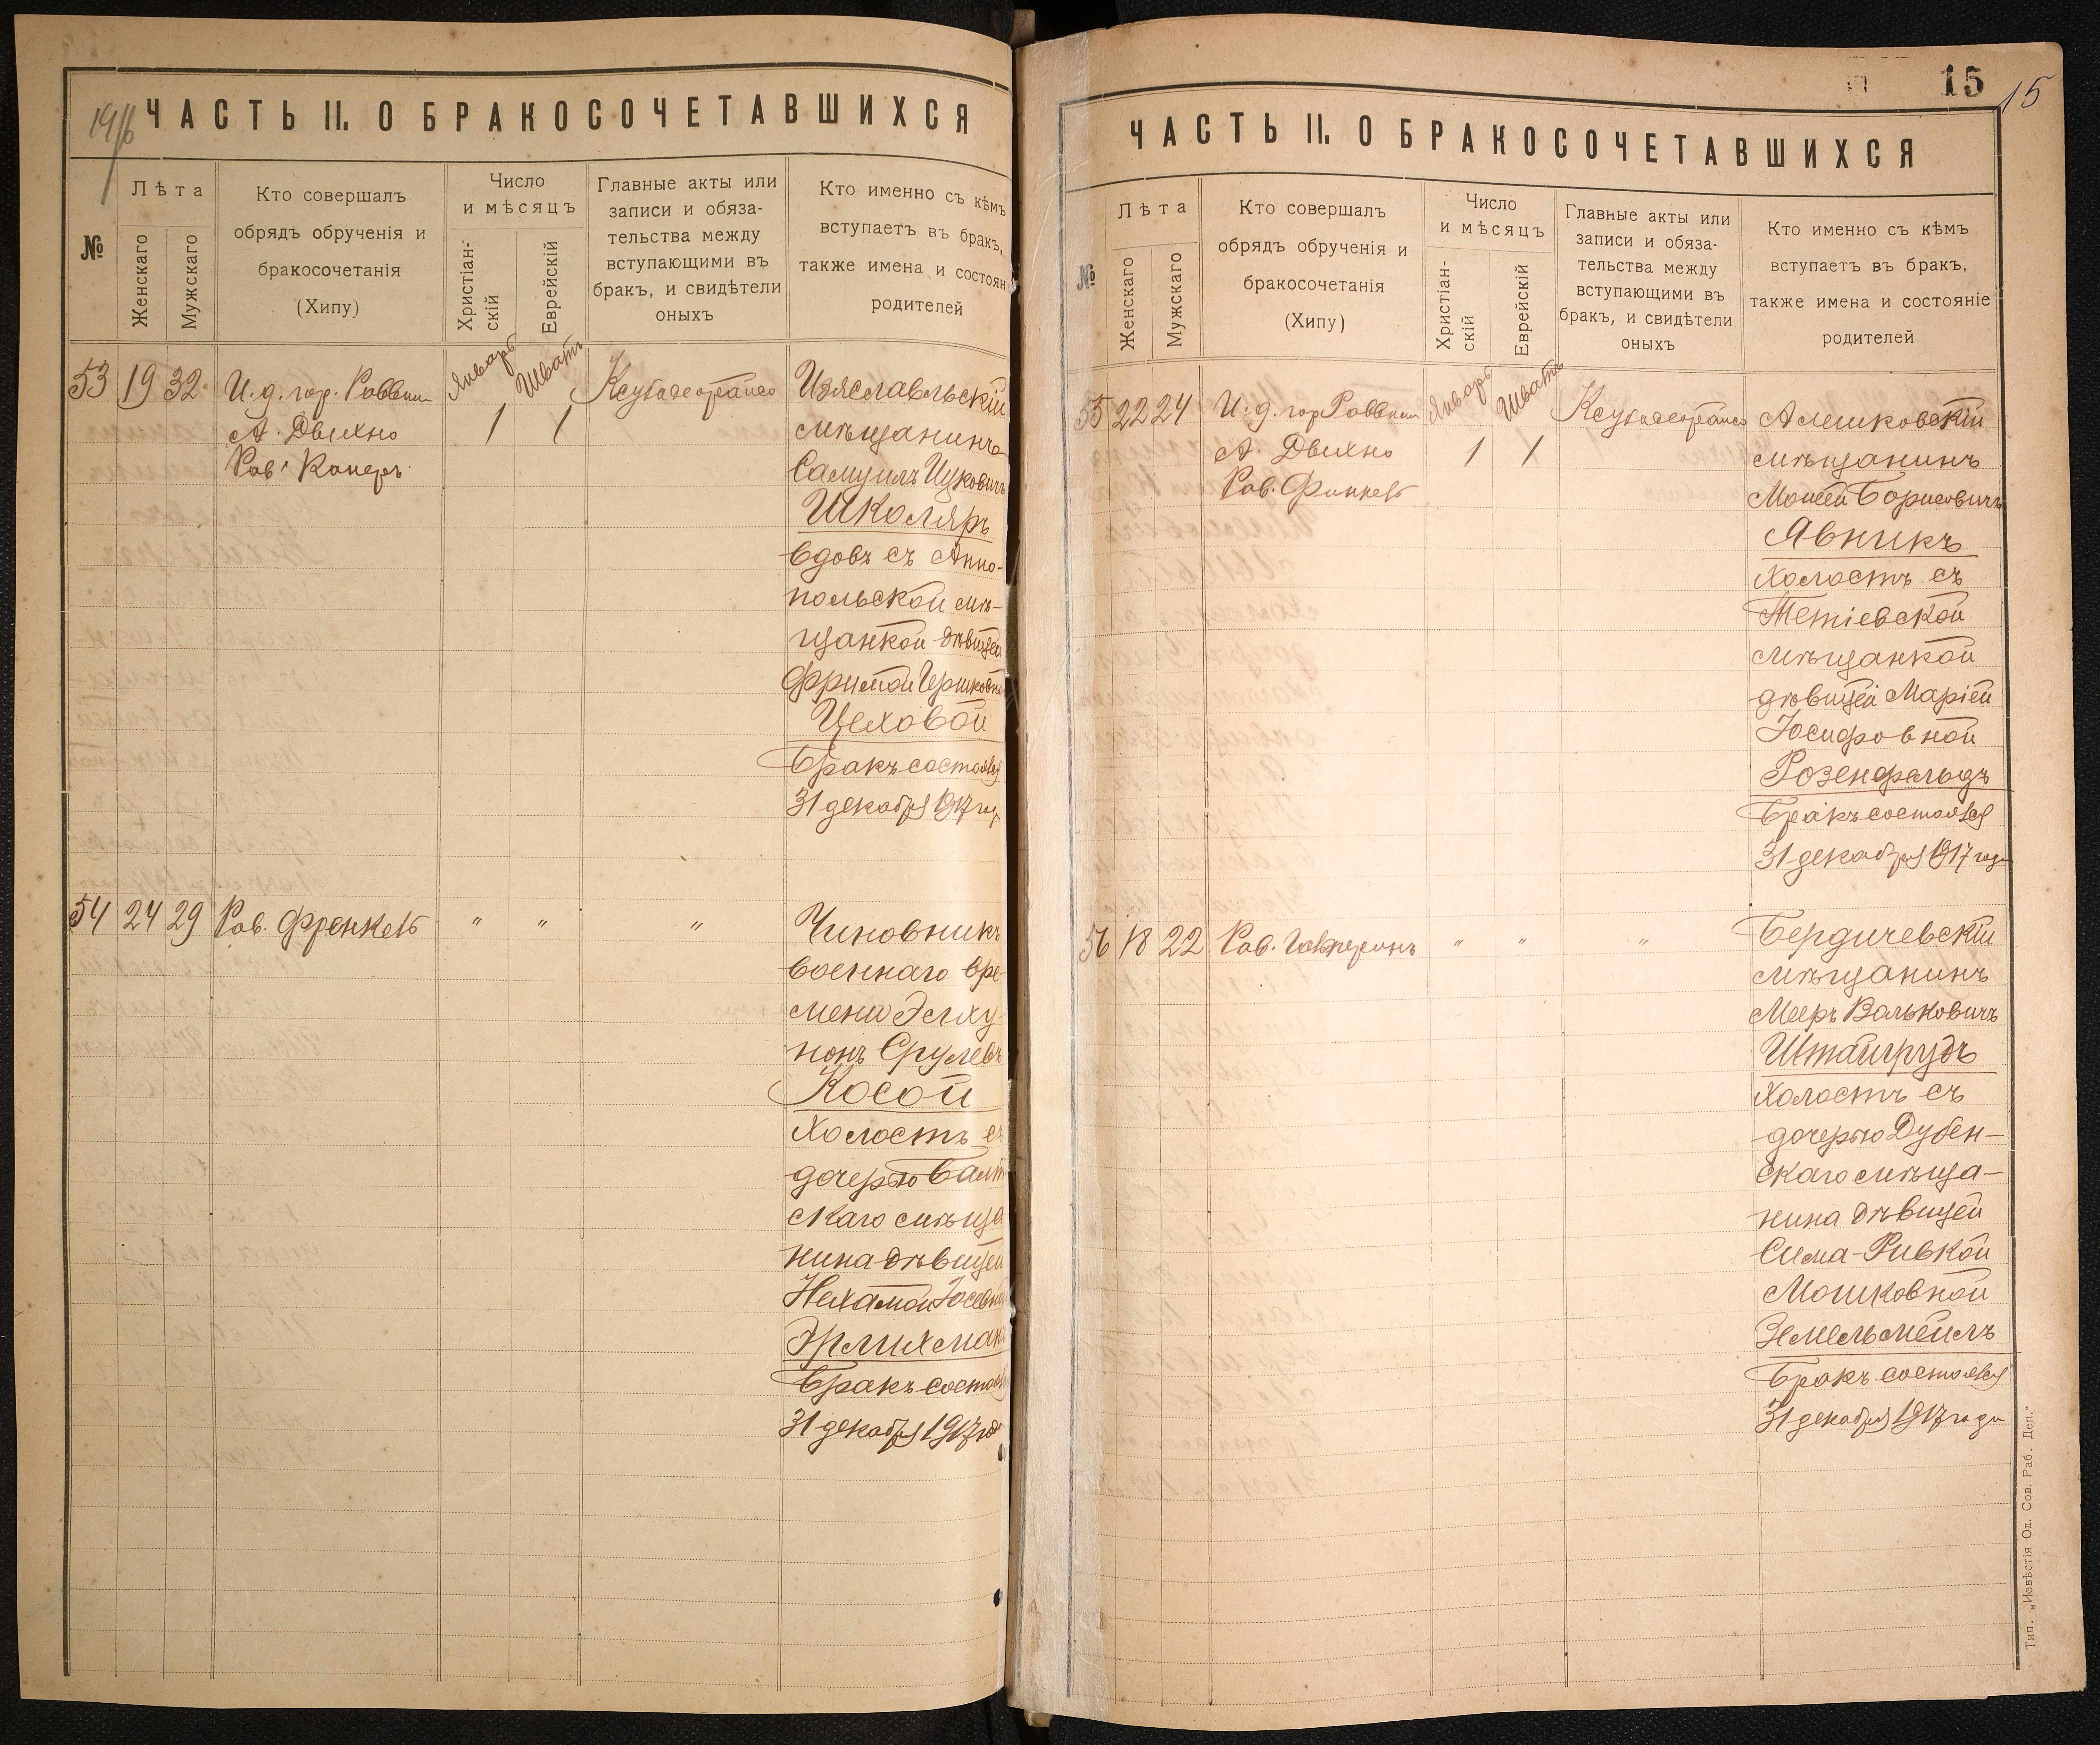 1916
ЧАСТЬ II. О БРАКОСОЧЕТАВШИХСЯ
№
Лѣта
Женскаго
Мужскаго
Кто совершалъ
обрядъ обрученія и
бракосочетанія
(Хипу)
Число
и мѣсяцъ
Христіан-
скій
Еврейскій
Главные акты или
записи и обяза-
тельства между
вступающими въ
бракъ, и свидѣтели
оныхъ
Кто именно съ кѣмъ
вступаетъ въ бракъ,
также имена и состоян
родителей
53 19 32
И. д. гор. Раввин
А. Двихно
Рав.
Январь
1
Шватъ
1
Изяславльскій
мѣщанинъ
Самуилъ Ицковичъ
Школяръ
вдовъ съ Анно-
польской мѣ-
щанкой дѣвицей
Фримой Гершковн
Цеховой
Бракъ состоялся
31 декабря 1917 го
54 24 29
Рав. Френкель
" " "
Чиновникъ
военнаго вре-
мени Элху-
нонъ Срулевъ
Косой
Холостъ съ
дочерью Балт
скаго мѣща
нина дѣвицей
Нехамой Іосевн
Эрлихман
Бракъ состоял
31 декабря 1917 год
15
15
ЧАСТЬ II. О БРАКОСОЧЕТАВШИХСЯ
№
Лѣта
Женскаго
Мужскаго
Кто совершалъ
обрядъ обрученія и
бракосочетанія
(Хипу)
Число
и мѣсяцъ
Христіан-
скій
Еврейскій
Главные акты или
записи и обяза-
тельства между
вступающими въ
бракъ, и свидѣтели
оныхъ
Кто именно съ кѣмъ
вступаетъ въ бракъ,
также имена и состояніе
родителей
55 22 24
И. д. гор Раввин
А. Двихно
Рав.
Январь
1
Шватъ
1
Алешковскій
мѣщанинъ
Моисей Борисовичъ
Явникъ
Холостъ съ
Тетіевской
мѣщанкой
дѣвицей Маріей
Іосифовной
Розенфельдъ
Бракъ состоялся
31 декабря 1917 года
56 18 22
Рав. Гальперинъ
" " "
Бердичевскій
мѣщанинъ
Мееръ Вольковичъ
Штайгрудъ
Холостъ съ
дочерью Дубен-
скаго мѣща-
нина дѣвицей
Сима-Ривкой
Мошковной
Земельмейлъ
Бракъ состоялся
31 декабря 1917 года
Тип. „Извѣстія Од. Сов. Раб. Деп."